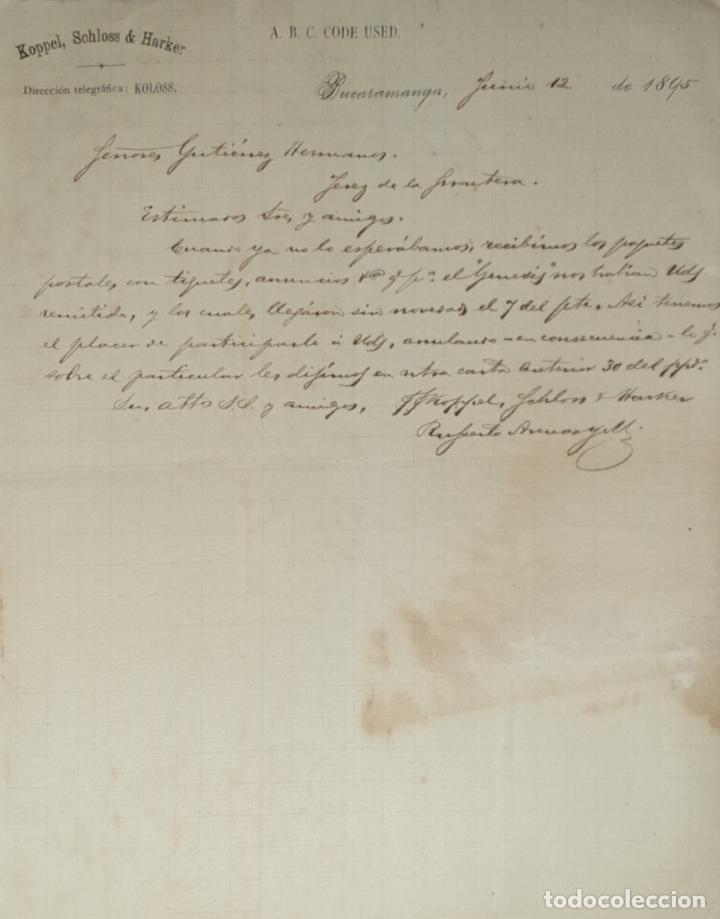 Koppel, Schloss & Harker
A. B. C. CODE USED.
Dirección telegráfica: KOLOSS.
Bucaramanga, Junio 12 de 1895
Señores Gutiérrez Hermanos.
Jerez de la frontera.
Estimados Sres y amigos.
Cuando ya no lo esperábamos, recibimos los paquetes
postales con tiquetes, anuncios &a q pa. el "Genesis" nos habían Uds
remitido, y los cuales llegáron sin novedad el 7 del pte. Asi tenemos
el placer de participarlo á Uds, anulando - en consecuencia - lo q.
sobre el particular les dijimos en ntra carta anterior 30 del ppdo.
Sus attos S.S. y amigos, Koppel, Schloss & Harker
Ruperto Arenas
todocoleccion